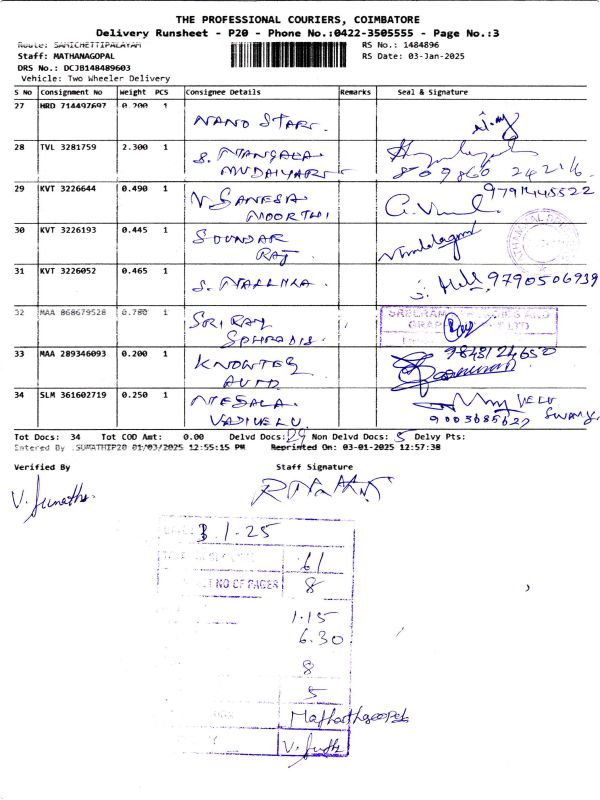 THE PROFESSIONAL COURIERS, COIMBATORE
Delivery Runsheet - P20 - Phone No.:0422-3505555 - Page No.:3
Route: SAMICHETTIPALAYAM RS No.: 1484896
Staff: MATHANAGOPAL RS Date: 03-Jan-2025
DRS No.: DCJB148489603
Vehicle: Two Wheeler Delivery
S No Consignment No Weight PCS Consignee Details Remarks Seal & Signature
27 HRD 714497697 0.200 1
NANO STAR.
28 TVL 3281759 2.300 1
S. MANGALA
MUDALIYAR
809860 24216
29 KVT 3226644 0.490 1 9791445522
V. GANESA
MOORTHI
30 KVT 3226193 0.445 1
SOUNDAR
RAJ
31 KVT 3226052 0.465 1
S. MALLIKA. 9790506939
32 MAA 868679528 0.780 1
SRI RAJ
33 MAA 289346093 0.200 1 9843124650
AUTO
34 SLM 361602719 0.250 1
VADIVELU VELU
9003685627
Tot Docs: 34 Tot COD Amt: 0.00 Delvd Docs: 29 Non Delvd Docs: 5 Delvy Pts:
Entered By :SUMATHIP20 01/03/2025 12:55:15 PM Reprinted On: 03-01-2025 12:57:38
Verified By Staff Signature
3.1-25
61
NO OF PAGES 8
1.15
6.30
8
5